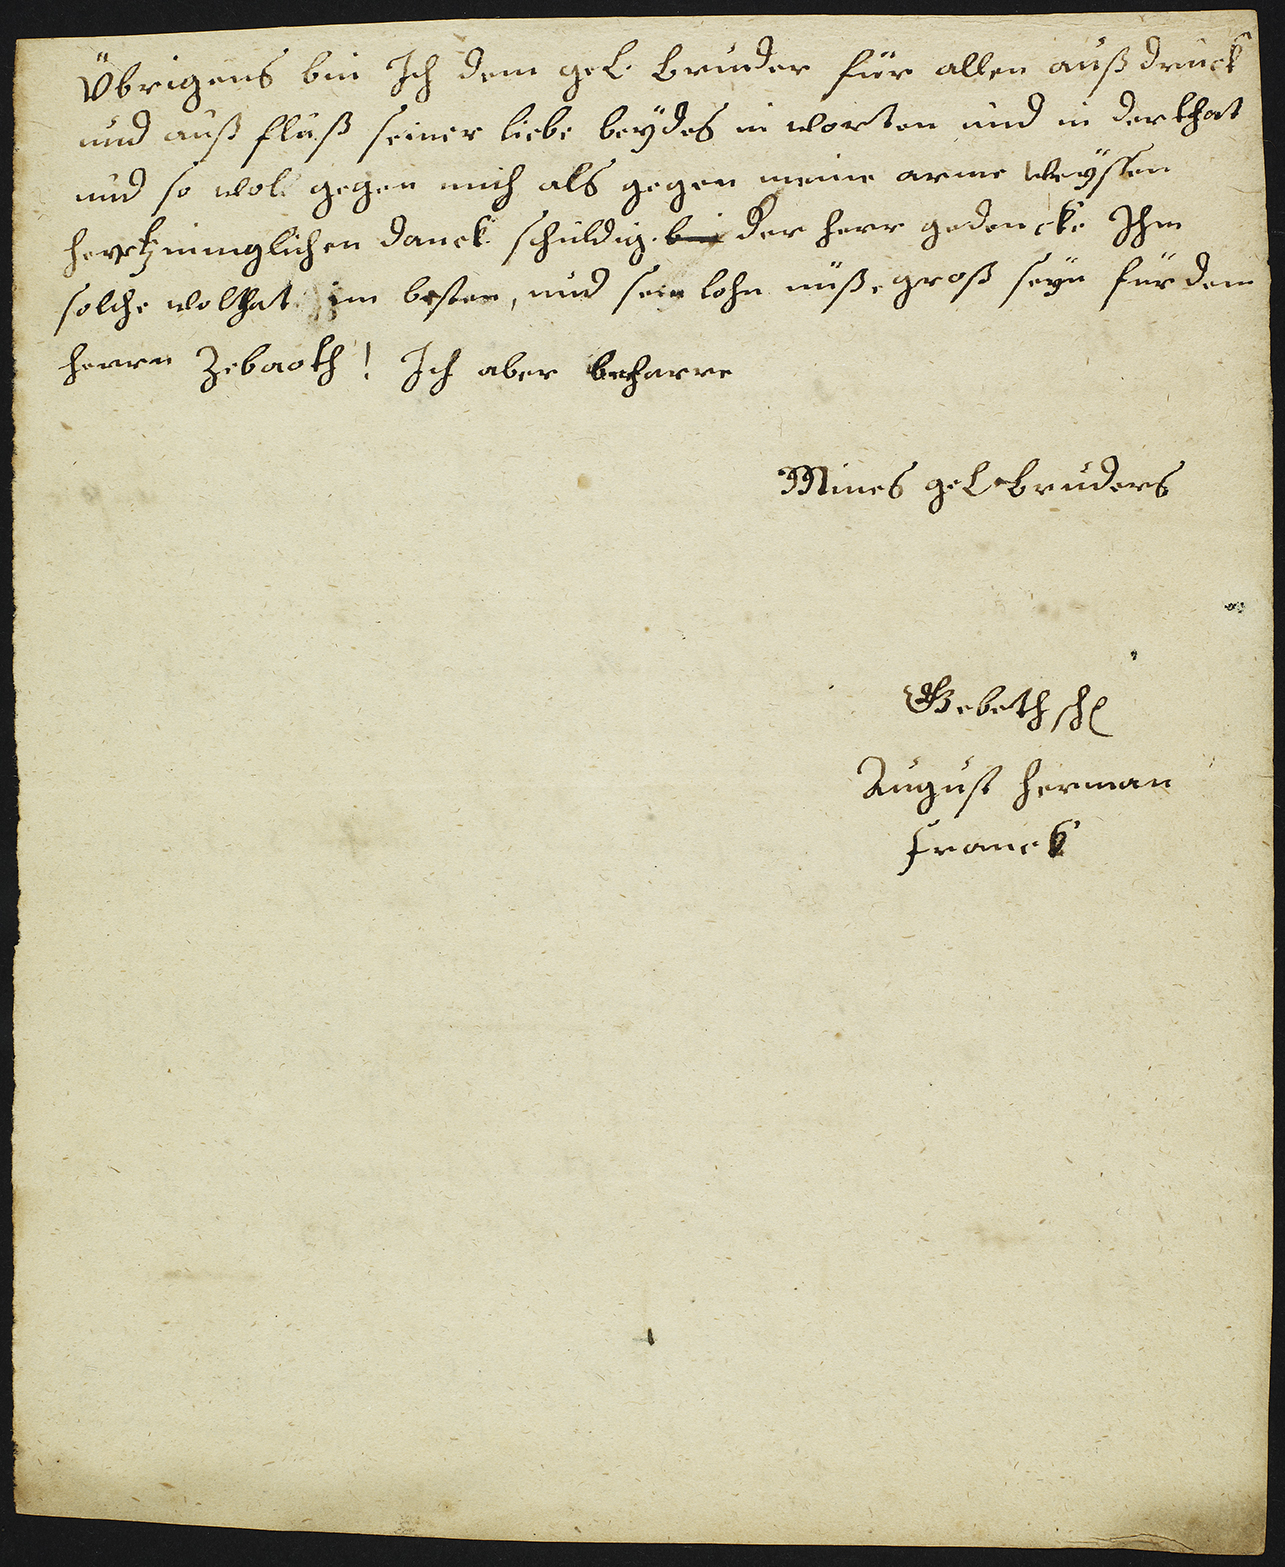 Übrigens bin Ich dem gel. bruder für allen auß druck
und auß fluß seiner liebe beÿdes in worten und in der that
und so wol gegen mich als gegen meine arme Weÿssen
hertzinniglichen danck schuldig. bin der herr gedencke Ihm
solche wolthat im besten, und sein lohn müße groß seÿn für dem
herrn Zebaoth! Ich aber beharre
Mines gel. bruders
Gebethsch
August Herman
Franck